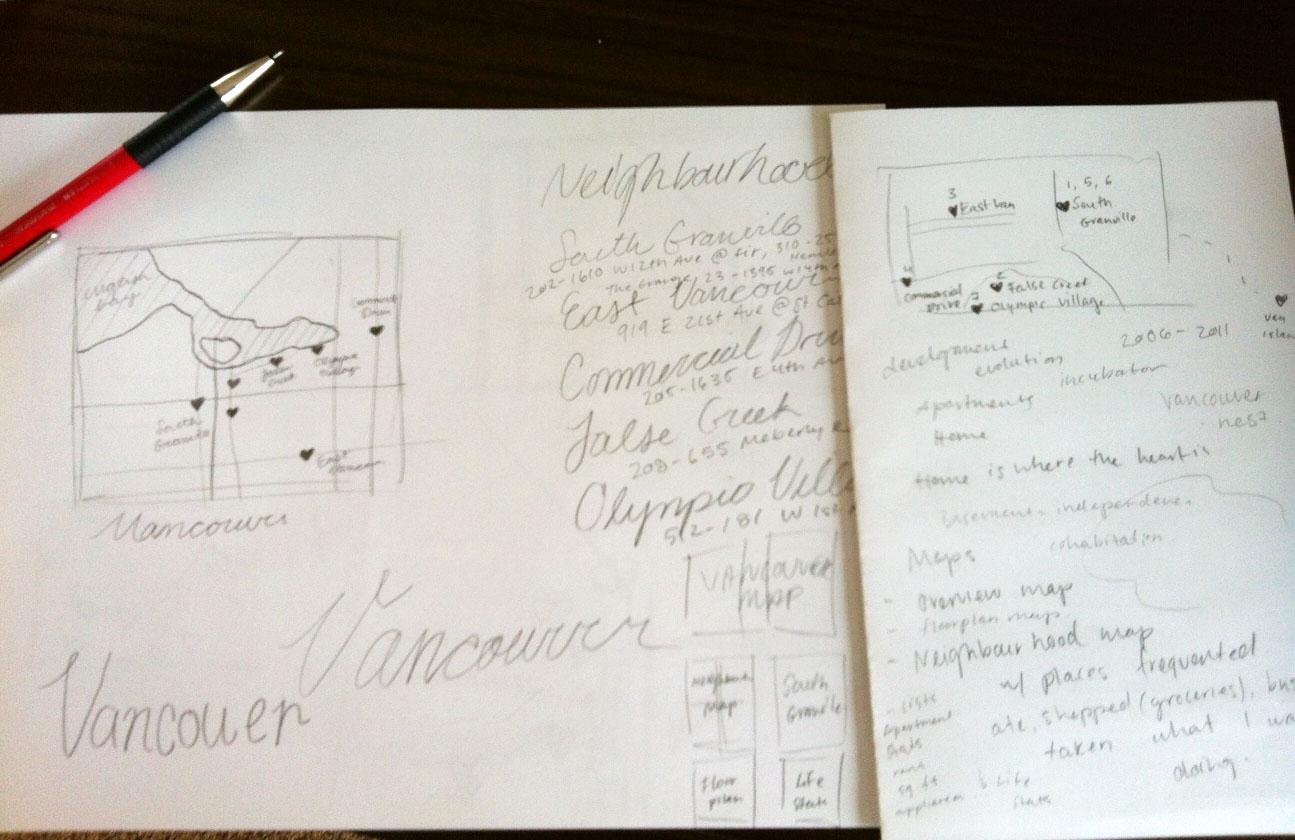 English
Bay
Commercial
Drive
False
Creek
Olympic
Village
South
Granville
East
Vancouver
Vancouver
Vancouver
Vancouver
Neighbourhood
South Granville
202-1610 W12th Ave @ Fir, 310-25
The Grange, 23-1395 W14th
East Vancouver
919 E 21st Ave @ St Ca
Commercial Driv
205-1635 E 4th Av
False Creek
208-655 Moberly
Olympic Villa
512-181 W 1st
Vancouver
Map
Neighbour
Map
South
Granville
Floor
plan
Life
Stats
3
East Van
1, 5, 6
South
Granville
4
Commercial
Drive
2
False Creek
7
Olympic Village
Van
Islan
development
evolution
2006-2011
incubator
Apartments
Vancouver
nest
Home
Home is where the heart is
independence
cohabitation
Maps
- overview map
- floorplan map
- Neighbourhood map
w/ places frequented
ate, shopped (groceries), bus
taken what I wa
doing.
- Lists
Apartment
Stats
rent
sq ft
appliances
& Life
Stats